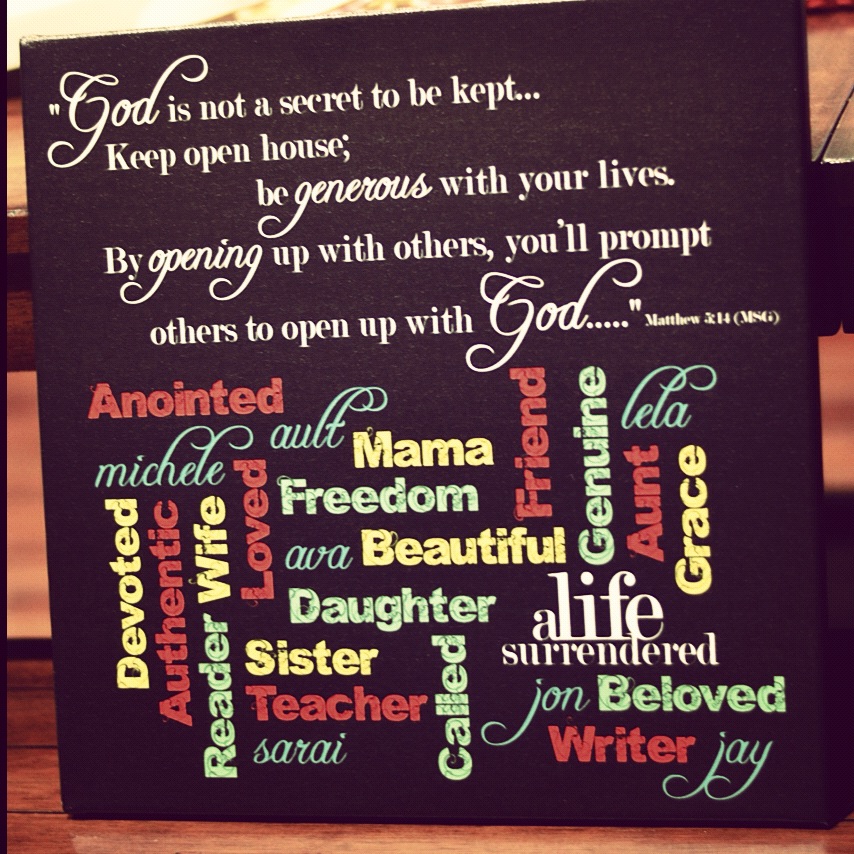 "God is not a secret to be kept...
Keep open house;
be generous with your lives.
By opening up with others, you'll prompt
others to open up with God....."
Matthew 5:14 (MSG)
Anointed
ault
michele
Mama
Friend
Genuine
lela
Devoted
Authentic
Wife
Loved
Freedom
Aunt
Grace
ava
Beautiful
Daughter
a life
surrendered
Reader
Sister
Called
jon
Beloved
Teacher
Writer
sarai
jay